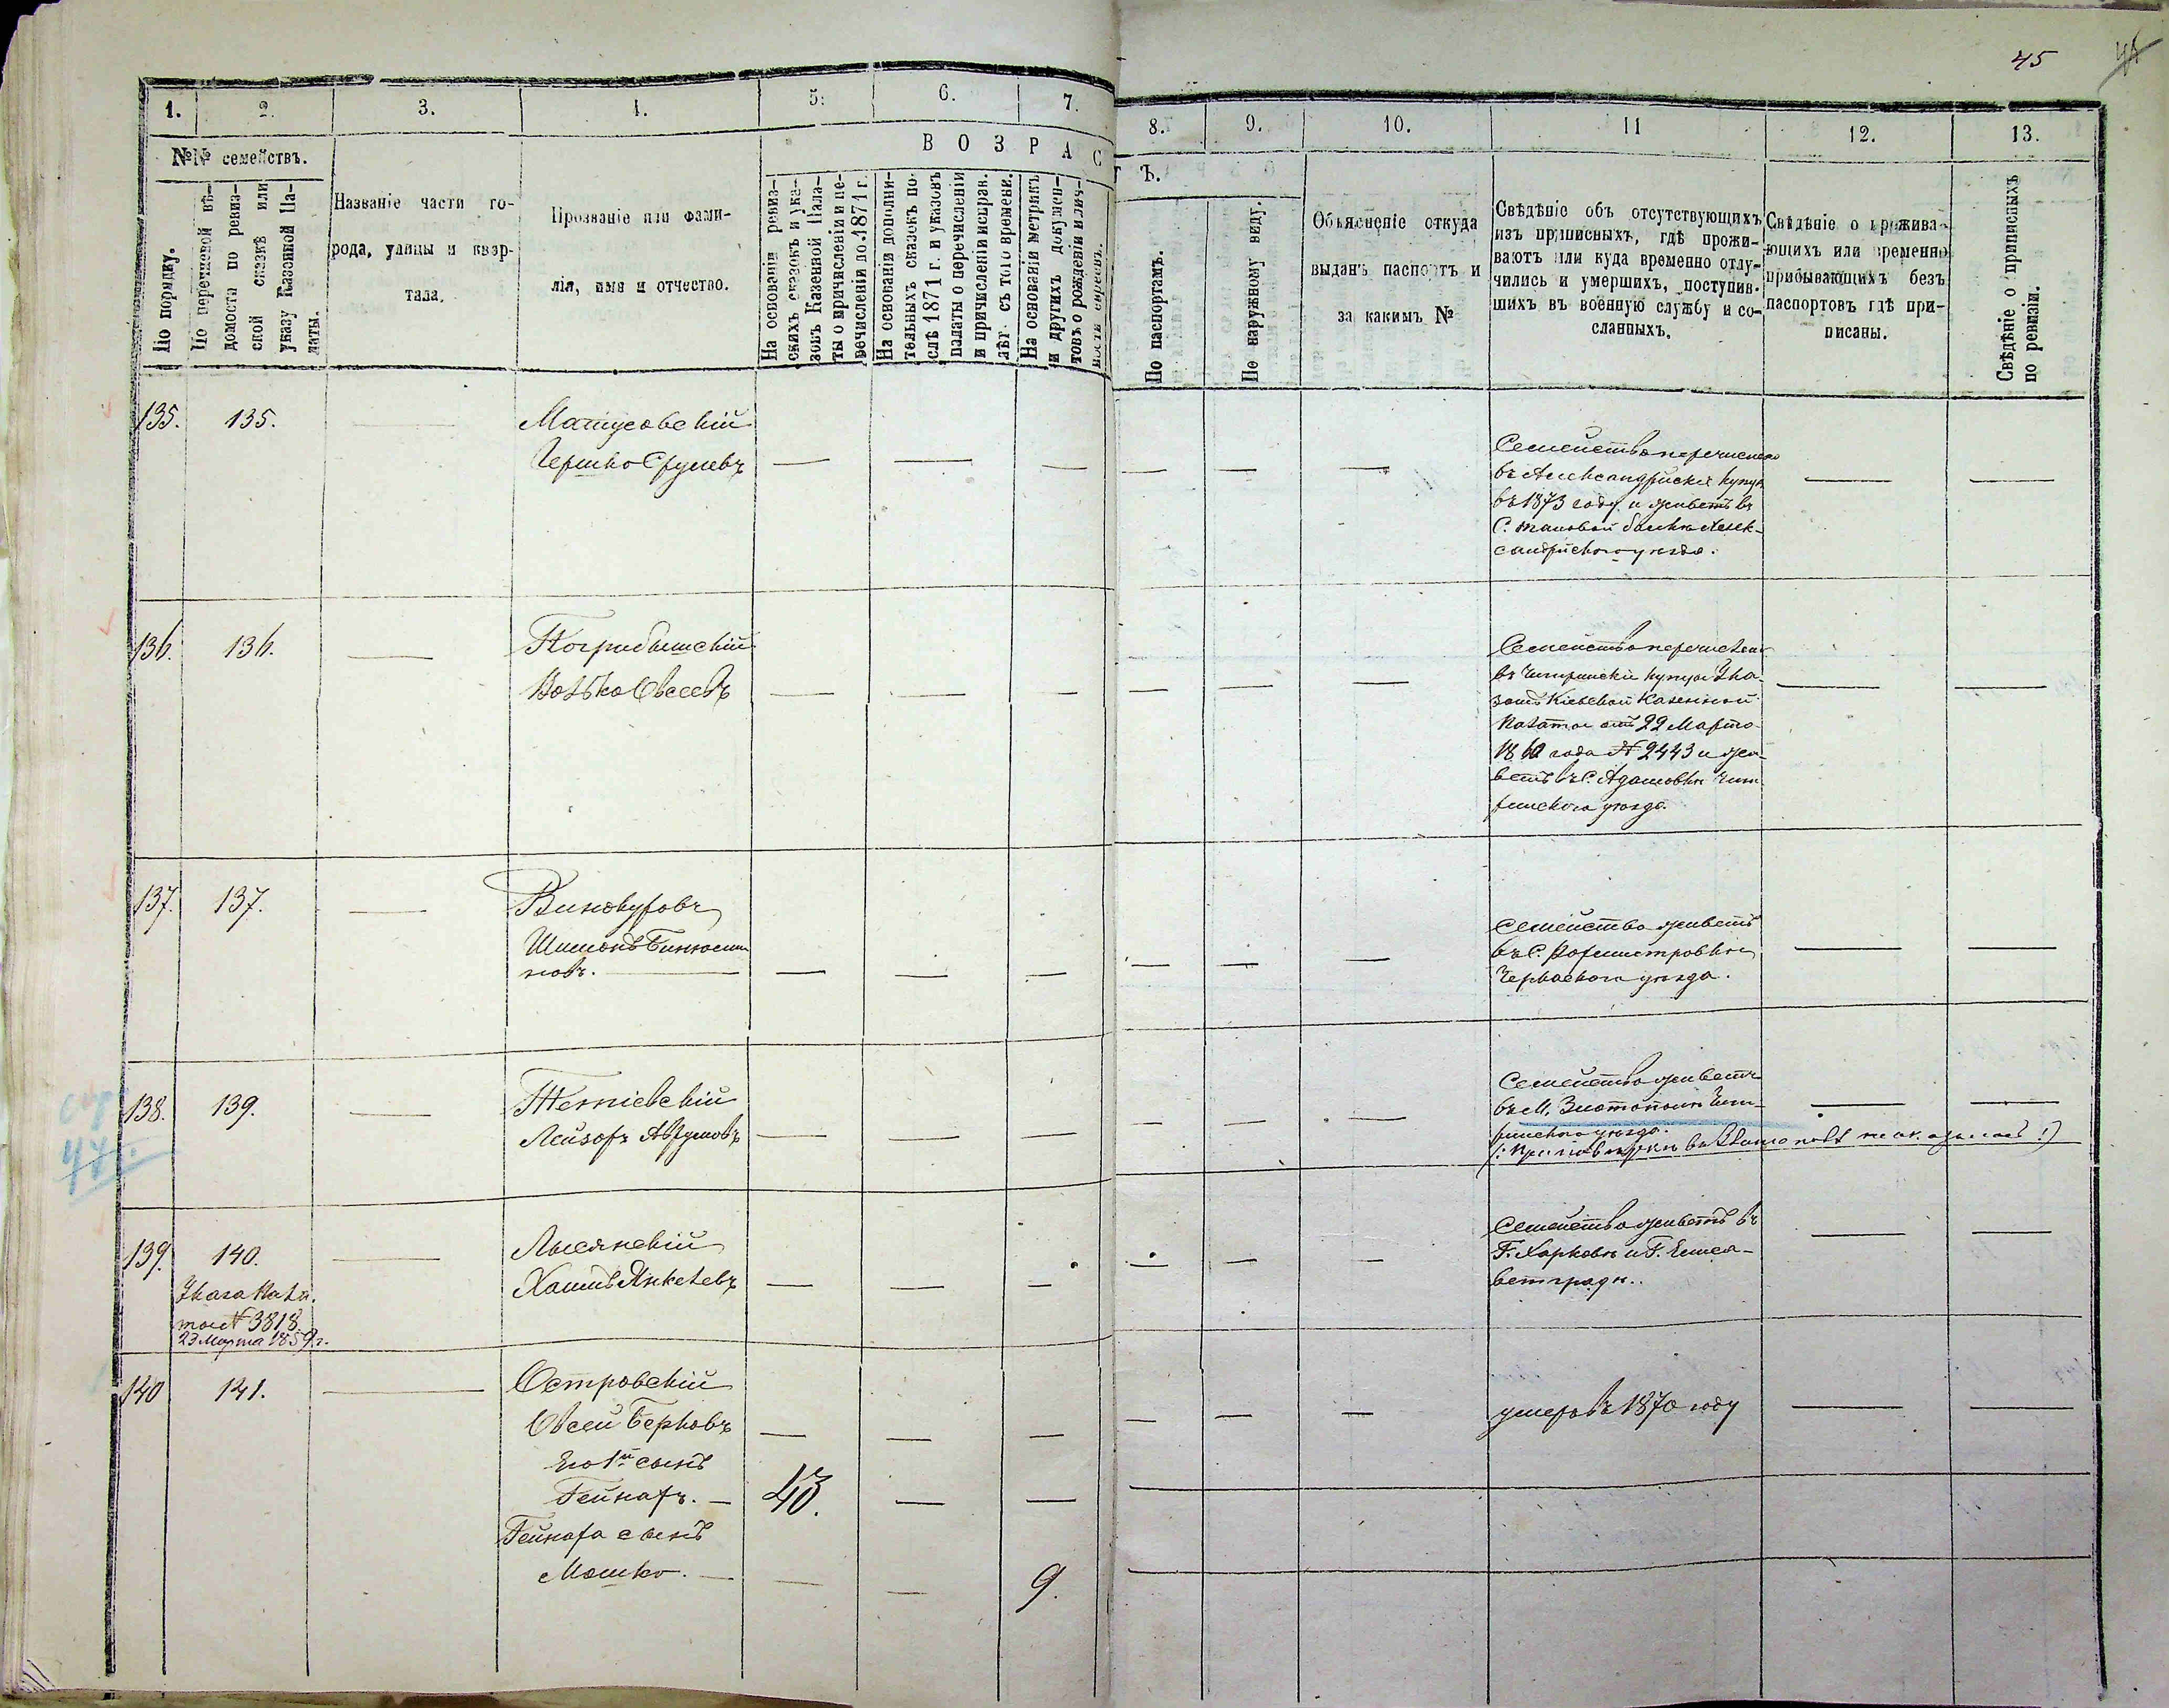 45
1. 2. 3. 4. 5. 6. 7.
8. 9. 10. 11 12. 13.
№№ семействъ.
По порядку.
По перечневой вѣ-
домости по ревиз-
ской сказкѣ или
указу Казенной Па-
латы.
Названіе части го-
рода, улицы и квар-
тала.
Прозваніе или фами-
лія, имя и отчество.
ВОЗРАС
ТЪ.
На основаніи ревиз-
скихъ сказокъ и ука-
зовъ Казенной Пала-
ты о причисленіи и пе-
речисленіи до 1871 г.
На основаніи дополни-
тельныхъ сказокъ по-
слѣ 1871 г. и указовъ
палаты о перечисленіи
и причисленіи исправ.
лѣт съ того времени.
На основаніи метрикъ
и другихъ докумен-
товъ о рожденіи и лич-
ности евреевъ.
По паспортамъ.
По наружному виду.
Объясненіе откуда
выданъ паспортъ и
за какимъ №
Свѣдѣніе объ отсутствующихъ
изъ приписныхъ, гдѣ прожи-
ваютъ или куда временно отлу-
чились и умершихъ, поступив-
шихъ въ военную службу и со-
сланныхъ.
Свѣдѣніе о прожива-
ющихъ или временно
прибывающихъ безъ
паспортовъ гдѣ при-
писаны.
Свѣдѣніе о приписныхъ
по ревизіи.
135. 135. Матусовскій
Гершко Срулевъ
Семейство перечислено
въ Александрійскіе купцы
въ 1873 году и живетъ въ
С. балки Алек-
сандрійского уѣзда.
136. 136. Погребышскій
Волько Овсеевъ
Семейство перечислено
въ Чигиринскіе купцы Ука-
зомъ Кіевской Казенной
Палаты отъ 22 Марта
года № 2443 и жи-
ветъ въ С. Адамовкѣ Чиг
ринского уѣзда.
137. 137. Винокуровъ
Шимонъ Биньоми
новъ.
Семейство живетъ
въ С. Ротмистровкѣ
Черкаского уѣзда.
138. 139. Тетіевскій
Лейзоръ Аврумовъ
Семейство живетъ
въ М. Златополѣ Чиги-
ринского уѣзда.
(: При повѣркѣ въ Златополѣ не оказалось :)
139. 140. Лысянскій
Хаимъ Янкелевъ
Указа Пала.
ты № 3818.
23 Марта 1859 г.
Семейство живетъ въ
Г. Харьковѣ и Г. Елиса-
ветградѣ.
140 141. Островскій
Овсей Берковъ
умеръ въ 1870 году
Его 1й сынъ
Гейнахъ. 43.
Гейнаха сынъ
Мошко. 9.